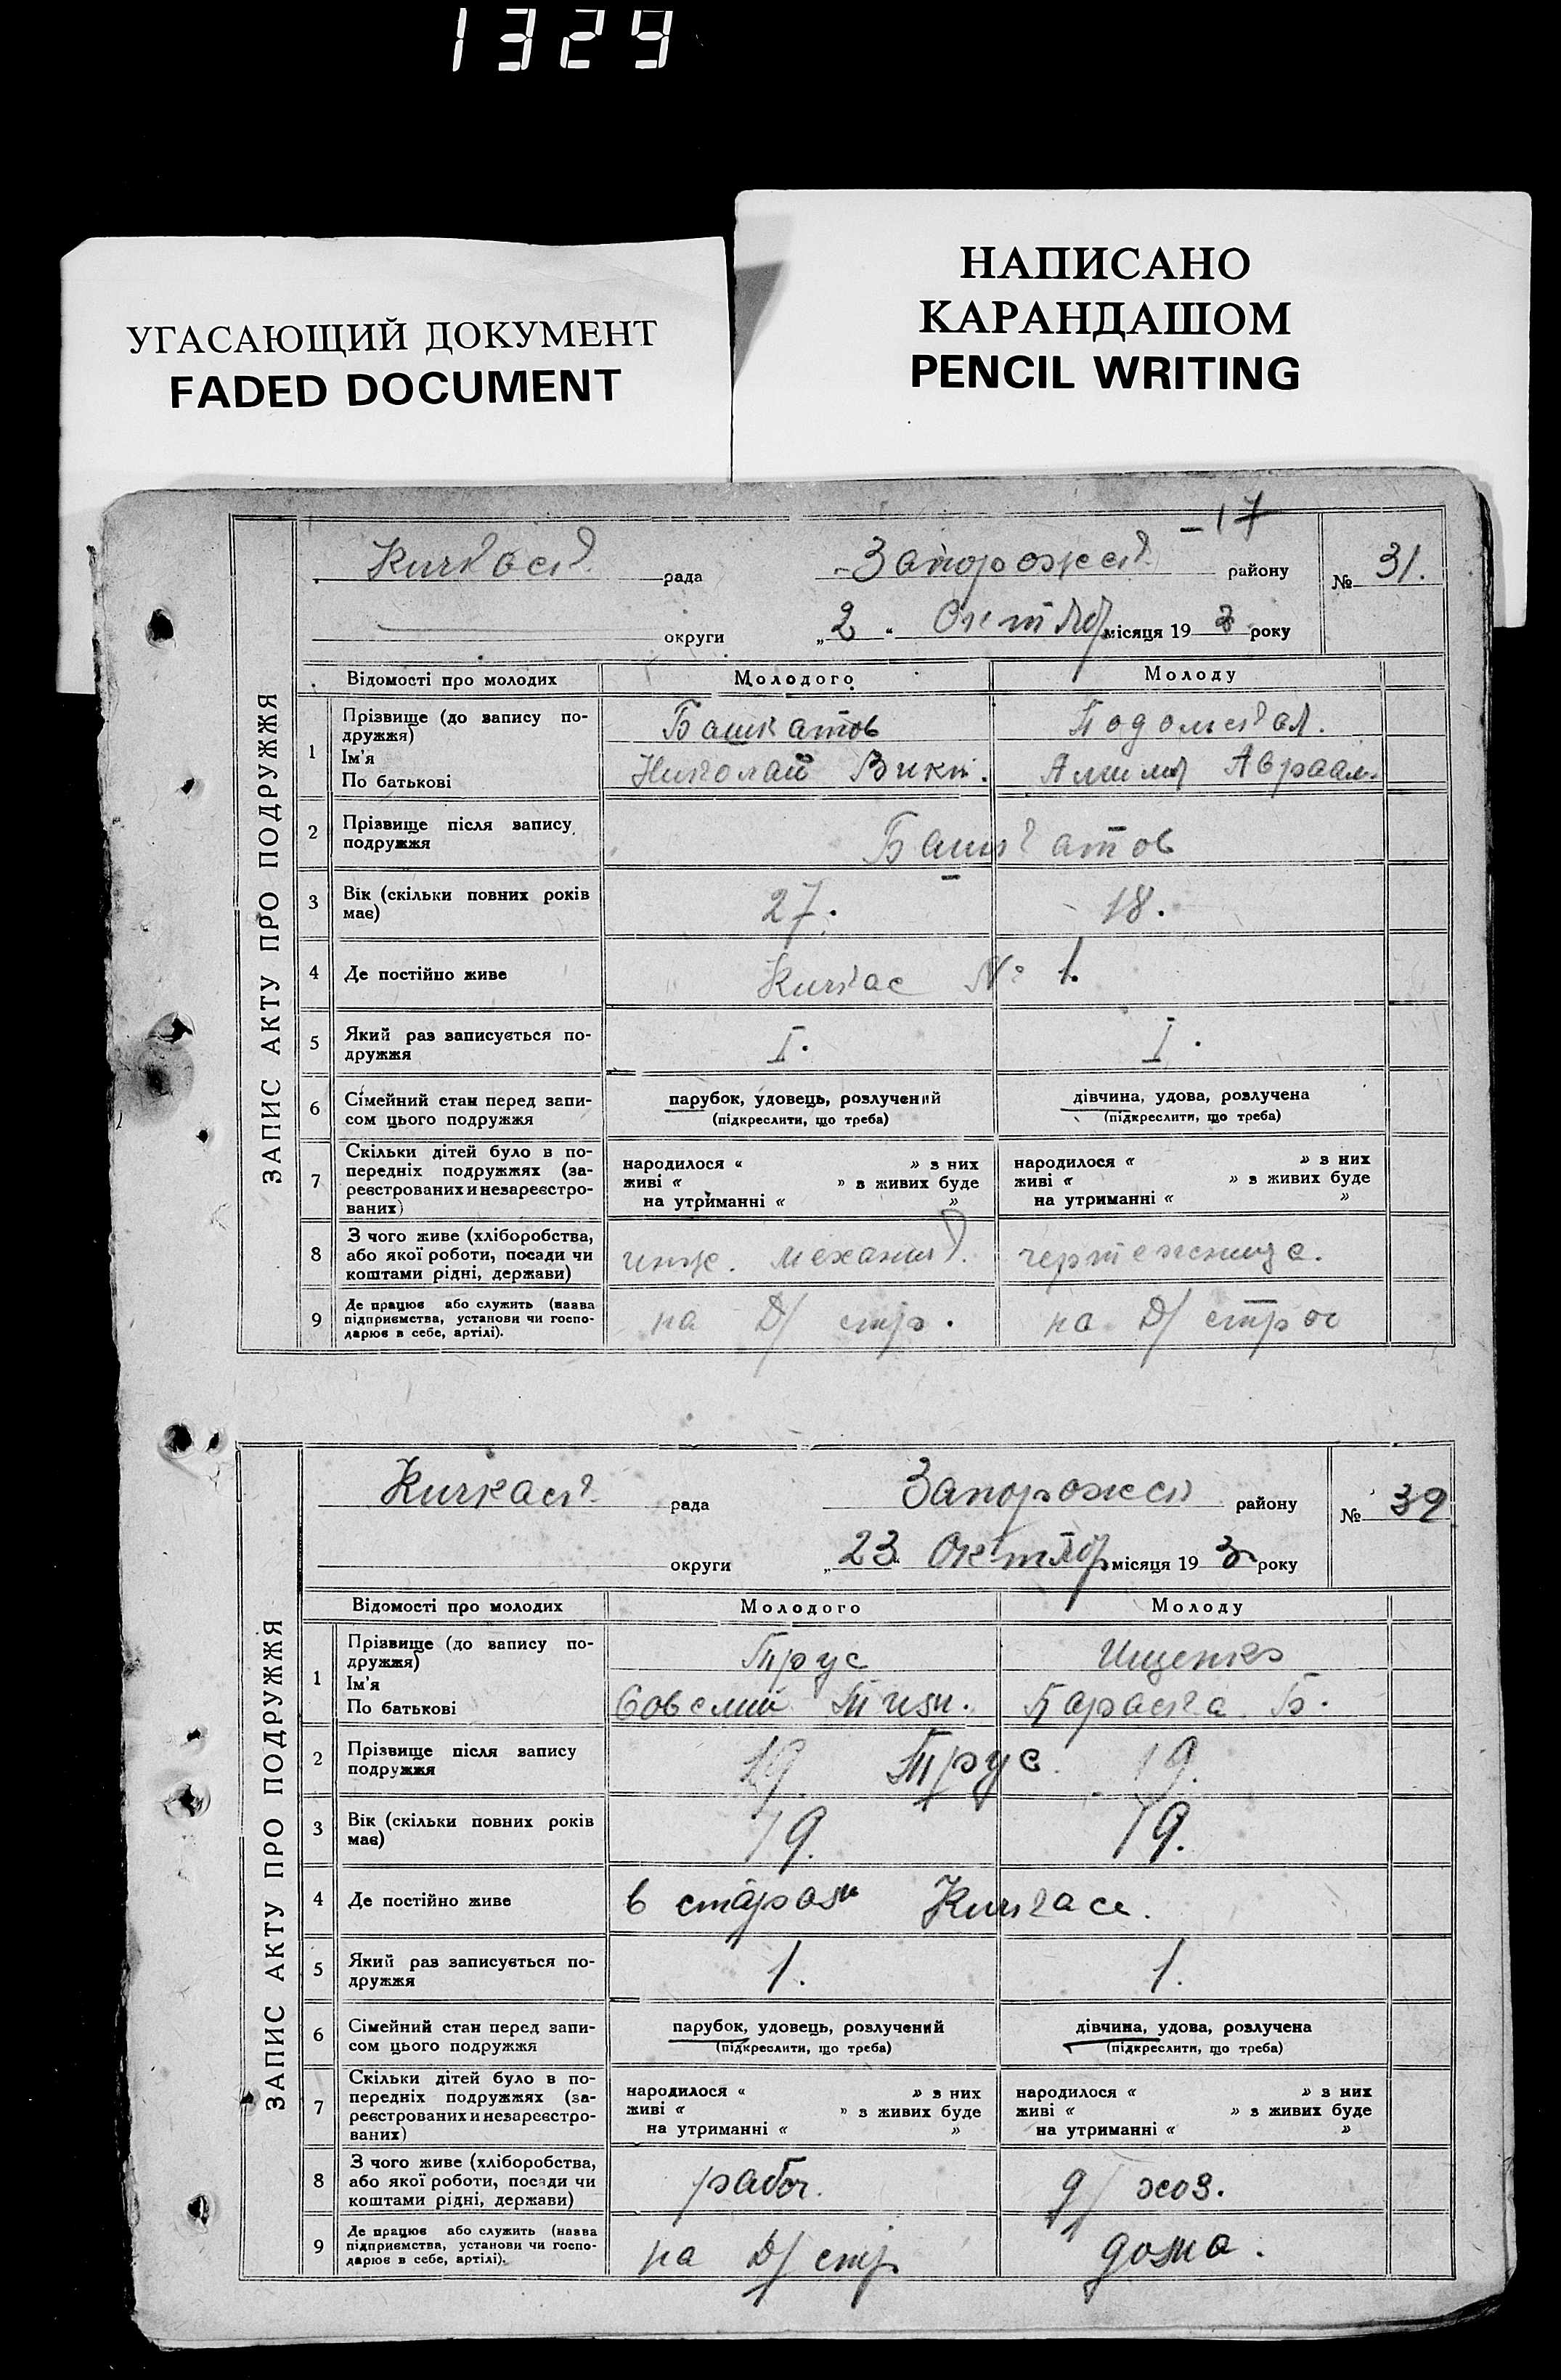 1329
УГАСАЮЩИЙ ДОКУМЕНТ
FADED DOCUMENT
НАПИСАНО
КАРАНДАШОМ
PENCIL WRITING
ЗАПИС АКТУ ПРО ПОДРУЖЖЯ
-17
рада Запорожск району № 31.
округи „2“ Октябр місяця 193 року
Відомості про молодих Молодого Молоду
1 Прізвище (до запису по-
дружжя) Башкатов Подольская.
Ім'я
По батькові Николай Викт. Авраам.
2 Прізвище після запису
подружжя Башкатов
3 Вік (скільки повних років
має) 27. 18.
4 Де постійно живе Кичкас № 1.
5 Який раз записується по-
дружжя I. I.
6 Сімейний стан перед запи-
сом цього подружжя
парубок, удовець, розлучений дівчина, удова, розлучена
(підкреслити, що треба) (підкреслити, що треба)
7 Скільки дітей було в по-
передніх подружжях (за-
реєстрованих и незареєстро-
ваних)
народилося « » з них народилося « » з них
живі « » з живих буде живі « » з живих буде
на утриманні « » на утриманні « »
8 З чого живе (хліборобства,
або якої роботи, посади чи
коштами рідні, держави)
инж. механик. чертежница.
9 Де працює або служить (назва
підприємства, установи чи госпо-
дарює в себе, артілі).
на Д/стр. на Д/строе
ЗАПИС АКТУ ПРО ПОДРУЖЖЯ
Кичкаск. рада Запорожск району № 39
округи „23 Октябр місяця 193 року
Відомості про молодих Молодого Молоду
1 Прізвище (до запису по-
дружжя) Трус Ищенко
Ім'я
По батькові Параска Б.
2 Прізвище після запису
подружжя 19. Трус. 19.
3 Вік (скільки повних років
має) 19. 19.
4 Де постійно живе в Кичкасе.
5 Який раз записується по-
дружжя 1. 1.
6 Сімейний стан перед запи-
сом цього подружжя
парубок, удовець, розлучений дівчина, удова, розлучена
(підкреслити, що треба) (підкреслити, що треба)
7 Скільки дітей було в по-
передніх подружжях (за-
реєстрованих и незареєстро-
ваних)
народилося « » з них народилося « » з них
живі « » з живих буде живі « » з живих буде
на утриманні « » на утриманні « »
8 З чого живе (хліборобства,
або якої роботи, посади чи
коштами рідні, держави)
рабоч. д/хоз.
9 Де працює або служить (назва
підприємства, установи чи госпо-
дарює в себе, артілі).
на Д/стр дома.